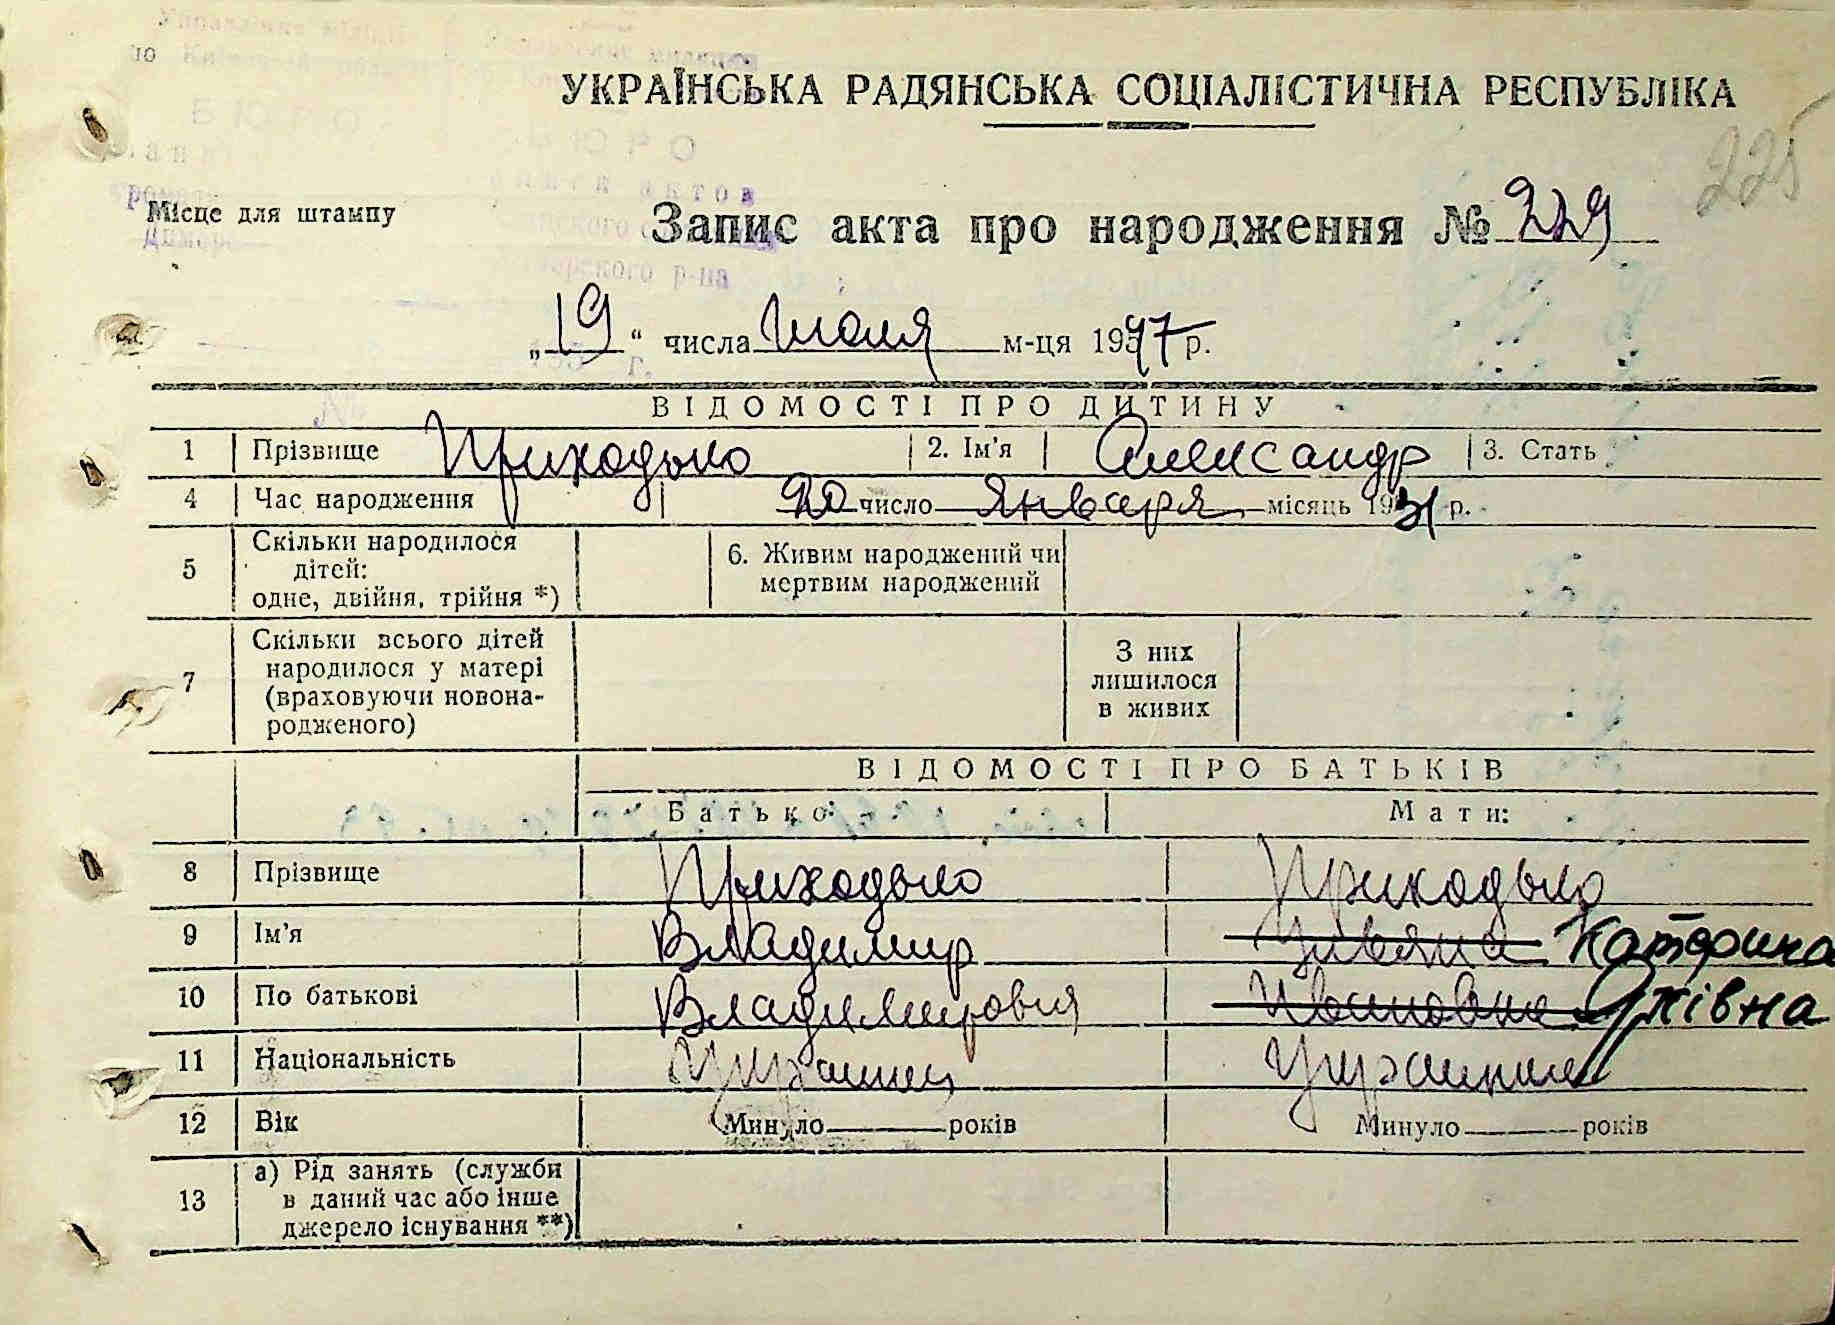 225
УКРАЇНСЬКА РАДЯНСЬКА СОЦІАЛІСТИЧНА РЕСПУБЛІКА
Місце для штампу
Запис акта про народження № 229
„19“ числа июля м-ця 1947 р.
ВІДОМОСТІ ПРО ДИТИНУ
1 Прізвище Приходько 2. Ім'я Александр 3. Стать
4 Час народження 20 число января місяць 1931 р.
5 Скільки народилося дітей: одне, двійня, трійня *) 6. Живим народжений чи мертвим народжений
7 Скільки всього дітей народилося у матері (враховуючи новонародженого) З них лишилося в живих
ВІДОМОСТІ ПРО БАТЬКІВ
Батько: Мати:
8 Прізвище Приходько Приходько
9 Ім'я Владимир Ульяна Катерина
10 По батькові Владимирович Ивановна
11 Національність Украинец Украинка
12 Вік Минуло років Минуло років
13 а) Рід занять (служби в даний час або інше джерело існування **)